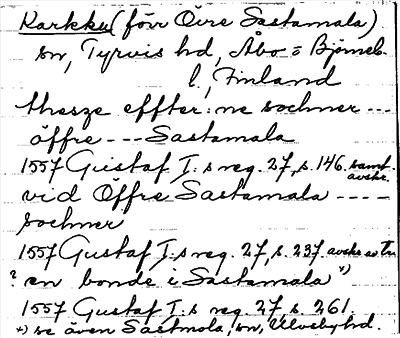 Karkku (förr Övre Sastamala)
sn, Tyrvis hd, Åbo o Björneb.
l, Finland
thesze effter:ne sochner ---
öffre --- Sastamala
1557 Gustaf I:s reg. 27, s. 146. samt. avskr.
vid Öffre Sastamala ----
sochner
1557 Gustaf I:s reg. 27, s. 237 avskr av
? en bonde i Sastamala *)
1557 Gustaf I:s reg. 27, s. 261.
*) se även Sastmola, sn, Ulvsby hd.